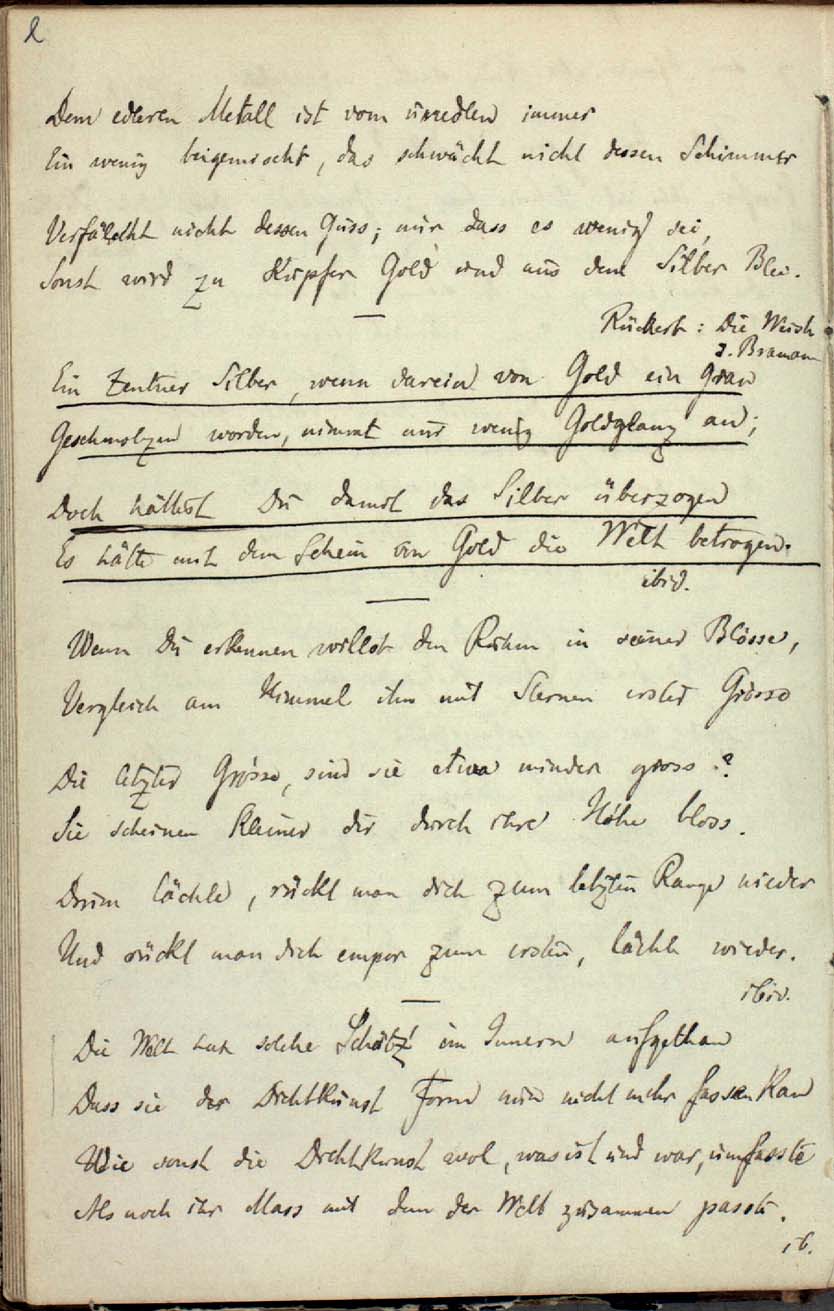 2
Dem edleren Metall ist vom unedlen immer
Ein wenig beigemischt, das schwächt nicht dessen Schimmer
Verfälscht nicht dessen Guss; nur dass es wenig sei,
Sonst wird zu Kupfer Gold und aus dem Silber Blei.
Rückert: Die Weish
d. Bramann
Ein Zentner Silber, wenn darein von Gold ein Gran
Geschmolzen worden, nimmt nur wenig Goldglanz an;
Doch hättest Du damit das Silber überzogen
Es hätte mit dem Schein von Gold die Welt betrogen.
ibid.
Wenn Du erkennen willst den Ruhm in seiner Blösse,
Vergleich am Himmel ihn mit Sternen erster Grösse
Die letzter Grösse, sind sie etwa minder gross?
Sie scheinen kleiner dir durch ihre Höhe bloss.
Drum lächle, rückt man dich zum letzten Range nieder
Und rückt man dich empor zum ersten, lächle wieder.
ibid.
Die Welt hat solche Schätz' im Innern aufgethan
Dass sie der Dichtkunst Form nun nicht mehr fassen kan
Wie sonst die Dichtkunst wol, was ist und war, umfasste
Als noch ihr Mass mit dem der Welt zusammen passte.
ib.